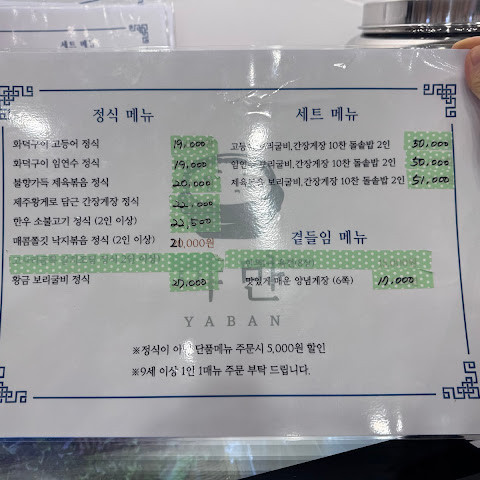 세트 메뉴
정식 메뉴
화덕구이 고등어 정식 19,000
화덕구이 임연수 정식 19,000
불향가득 제육볶음 정식 20,000
제주황게로 담근 간장게장 정식 22,000
한우 소불고기 정식 (2인 이상) 22,500
매콤쫄깃 낙지볶음 정식 (2인 이상) 21,000원
황금 보리굴비 정식
세트 메뉴
보리굴비,간장게장 10찬 돌솥밥 2인 50,000
보리굴비,간장게장 10찬 돌솥밥 2인 50,000
보리굴비,간장게장 10찬 돌솥밥 2인 51,000
곁들임 메뉴
맛있게 매운 양념게장 (6쪽)
야반
YABAN
※정식이 단품메뉴 주문시 5,000원 할인
※9세 이상 1인 1매뉴 주문 부탁 드립니다.